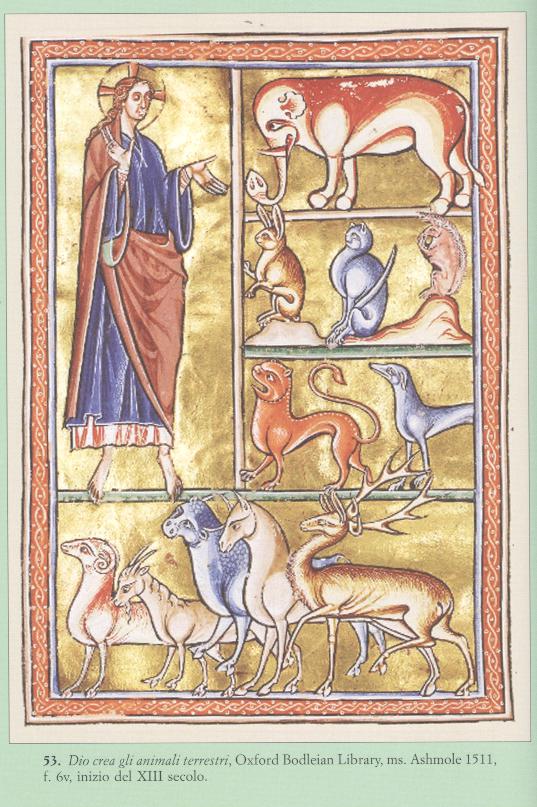 53. Dio crea gli animali terrestri, Oxford Bodleian Library, ms. Ashmole 1511,
f. 6v, inizio del XIII secolo.